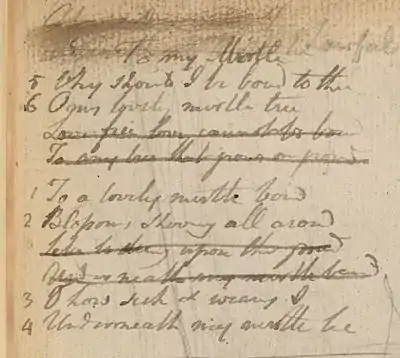 To my Mirtle
5 Why should I be bound to thee
6 O my lovely mirtle tree
Love free love cannot be bound
To any tree that grows on ground
1 To a lovely mirtle bound
2 Blossoms showring all around
upon the ground
Underneath my mirtle bound
3 O how sick & weary I
4 Underneath my mirtle lie